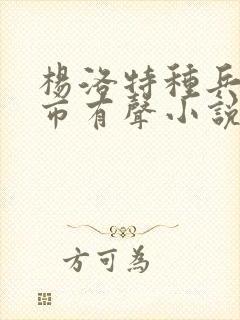 楊洛特種兵
市有聲小說
方可為